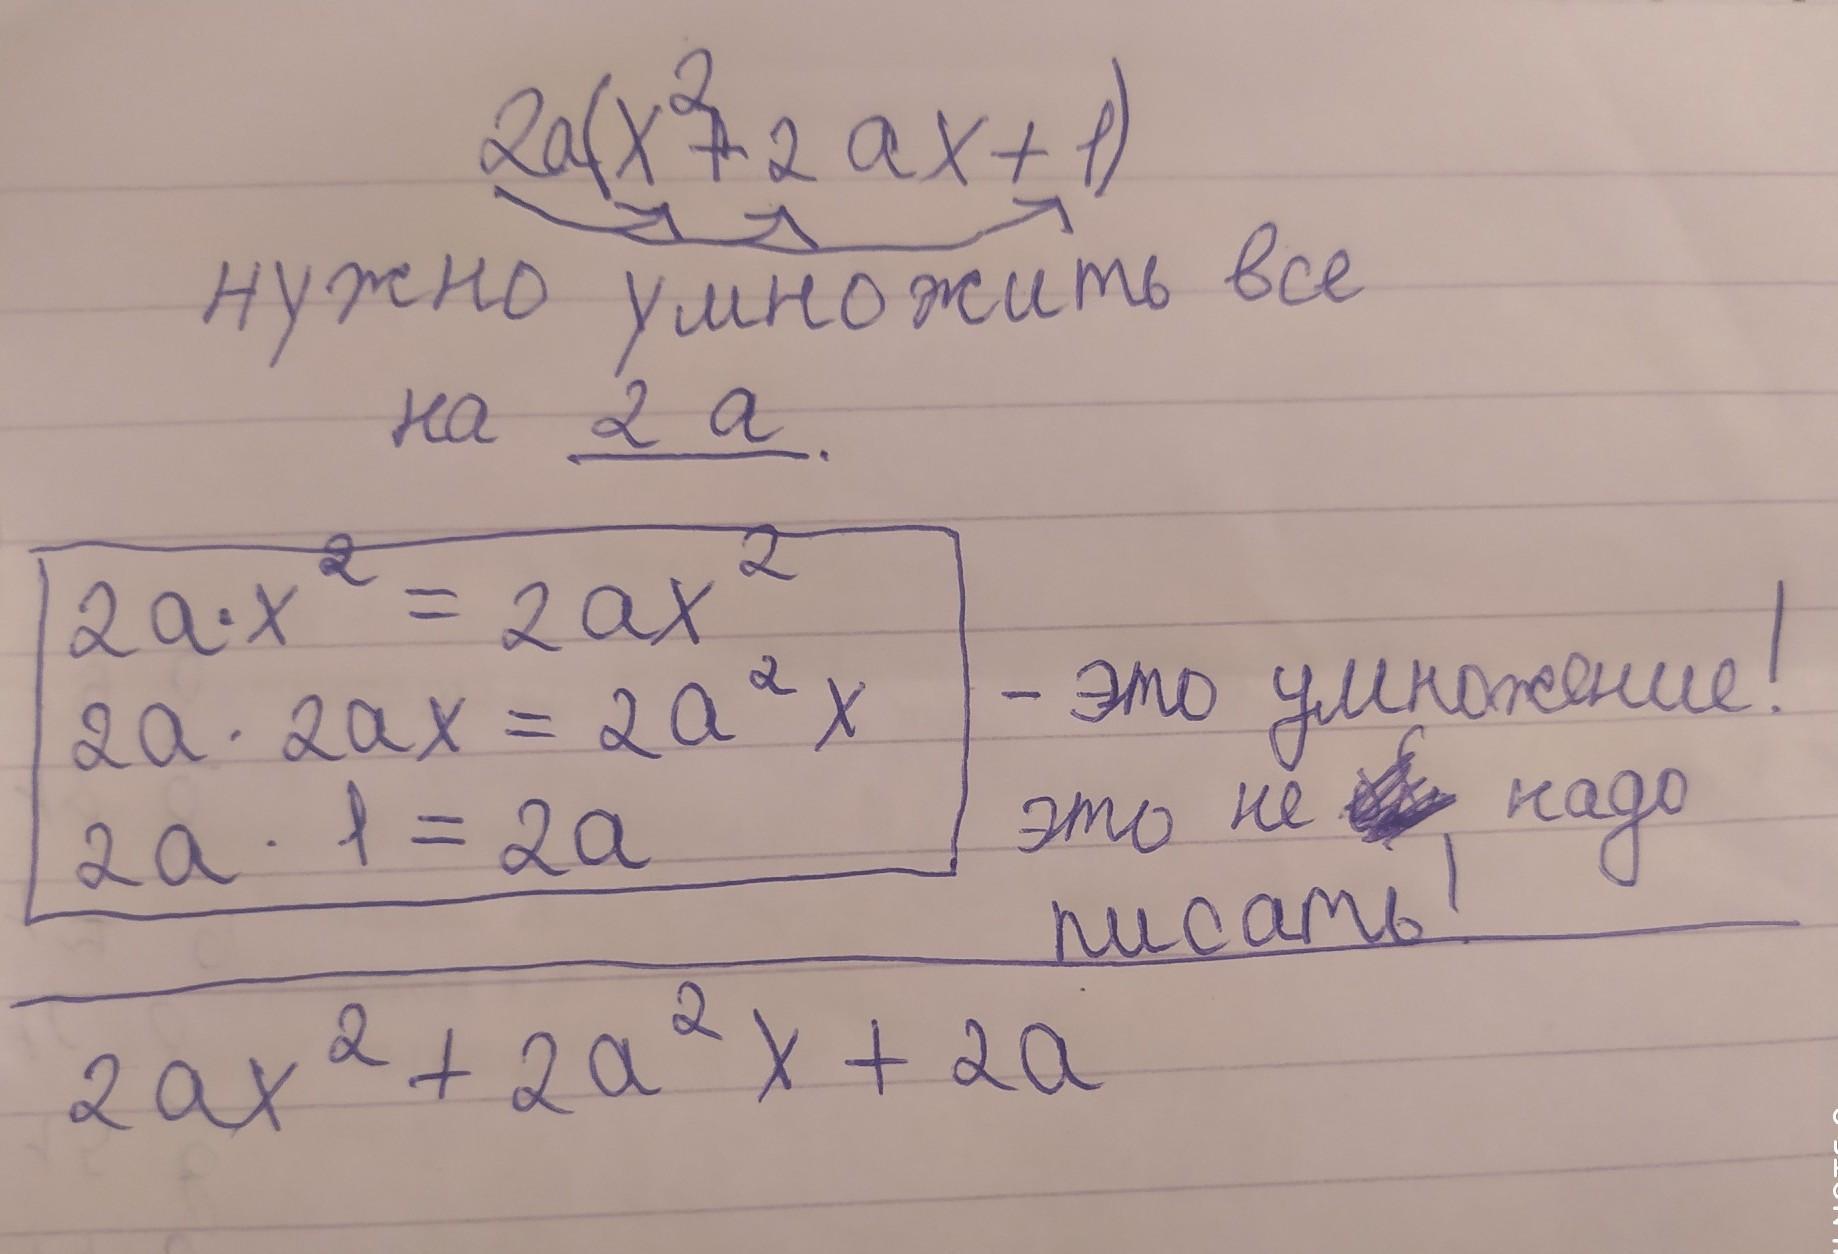 2a(x²+2ax+1)
нужно умножить все
на 2a.
2a·x² = 2ax²
2a·2ax = 2a²x
2a·1 = 2a
- это умножение!
это не надо
писать!
2ax² + 2a²x + 2a